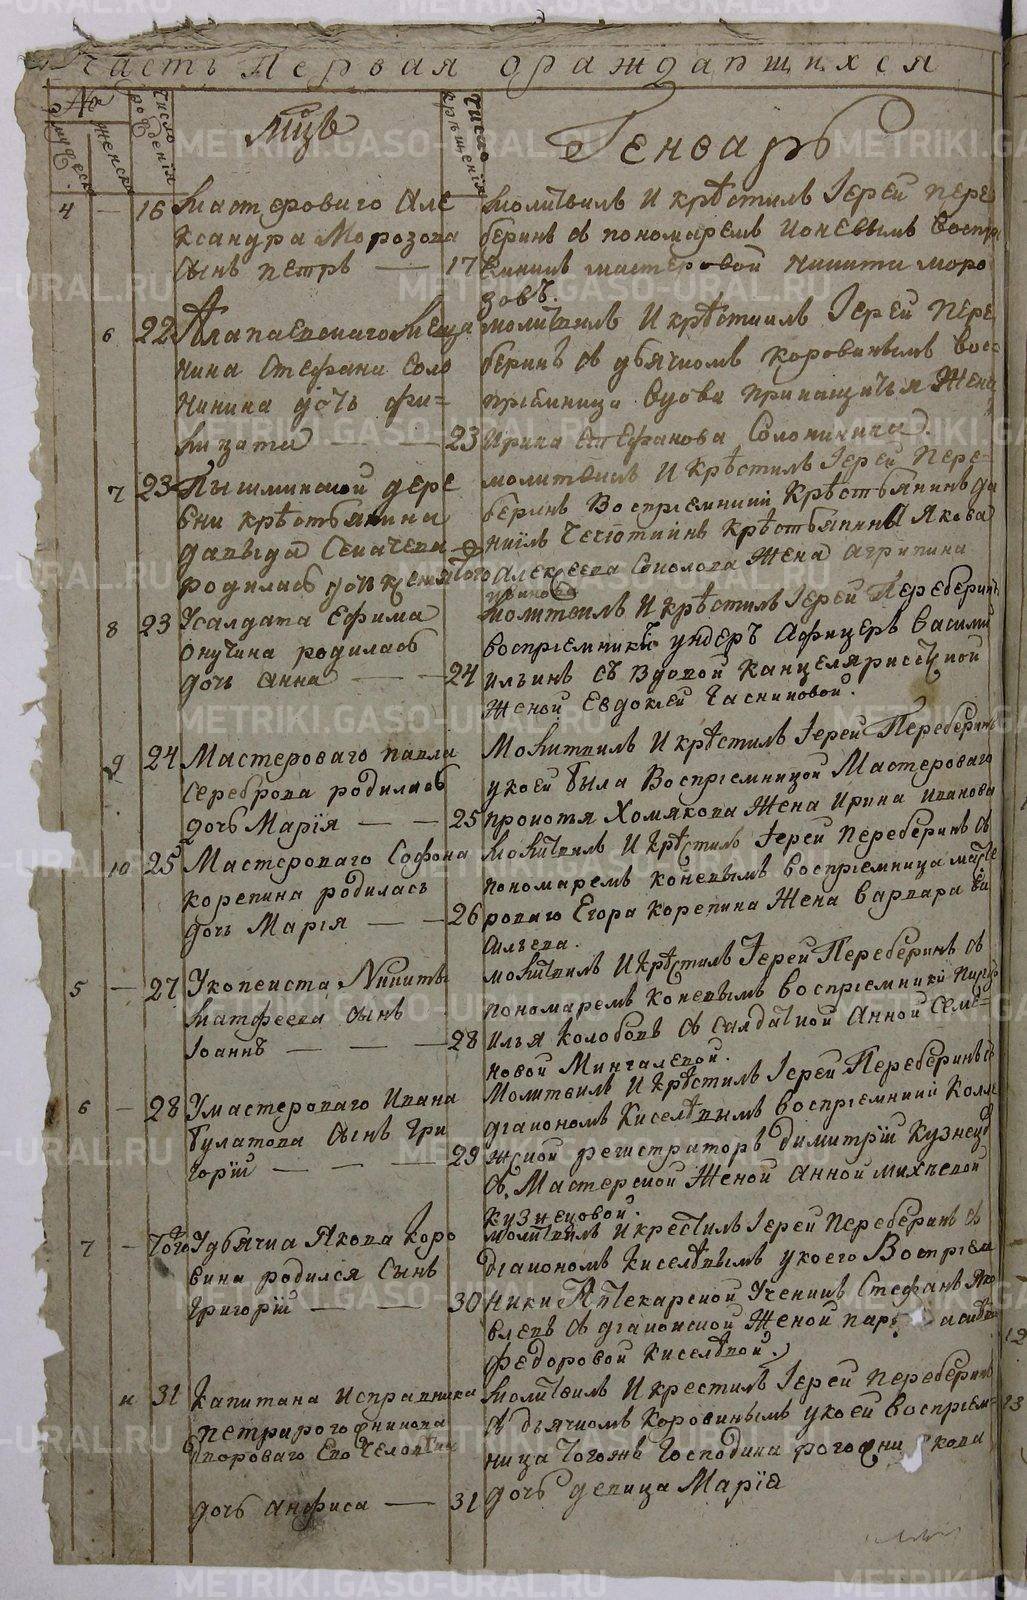 Часть Первая ораждающихся
№
мужеска
женска
число рождения
лицъ
число крѣщения
Генварь
4 — 16 Мастероваго Але
ксандра Морозова
сынъ петръ — 17
молитвилъ И крѣстилъ Іерей пере
беринъ съ пономаремъ Коневымъ воспри
емникъ мастеровой никита моро
зовъ.
6 22 Алапаевскаго меща
нина Стефана Соло
нинина дочь
лизата — 23
молитвилъ И крѣстилъ Іерей Пере
беринъ съ дьячкомъ коровинымъ вос
пріемница вдова Жена
Ирина Стефанова Солонинина.
7 23 Пышминской дере
вни крѣстьянина
давыда Сеначева
родилась дочь
того
молитвилъ И крѣстилъ Іерей Пере=
беринъ Воспріемники Крѣстьянинъ да
ніилъ крѣстьянина Якова
Алексеева Соколова Жена агрипина
8 23 Усалдата Ефима
Онучина родилась
дочь анна — — 24
молитвилъ И крѣстилъ Іерей Переберинъ
воспріемники ундеръ Афицеръ василий
ильинъ съ вдовой Канцеляриской
Женой Евдокией Часниковой.
9 24 Мастероваго павла
Сереброва родилась
дочь Марія — — 25
Молитвилъ И крѣстилъ Іерей Переберинъ
укоей была Воспріемницой Мастероваго
Хомякова Жена Ирина иванова
10 25 Мастероваго Софона
корепина родилась
дочь Марія — — 26
молитвилъ И крѣстилъ Іерей переберинъ съ
пономаремъ коневымъ воспріемница масте
роваго Егора корепина Жена варвара ва
сильева.
5 — 27 Укопеиста Никиты
Матфеева сынъ
Іоаннъ — — — 28
молитвилъ И крѣстилъ Іерей Переберинъ съ
пономаремъ коневымъ воспріемники
Илья колобовъ съ салдатской Анной Семе=
новой Мингалевой.
6 — 28 Умастероваго Ивана
булатова сынъ Гри
горій — — — 29
Молитвилъ И крѣстилъ Іерей Переберинъ съ
діакономъ Киселѣвымъ воспріемники Колле
жской регистраторъ димитрій Кузнецов
съ Мастерской Женой анной михѣевой
кузнецовой.
7 — Того Удьячка Якова Коро
вина родился сынъ
Григорій — — 30
молитвилъ И крестилъ Іерей Переберинъ съ
діакономъ Киселѣвымъ укоего Воспріем
ники Аптекарской Ученикъ Стефанъ Яко
влевъ съ діаконской Женой
федоровой Киселѣвой.
и 31 Капитана Исправника
петра рогожникова
двороваго Его Челов
дочь Анфиса — 31
молитвилъ И крестилъ Іерей переберинъ
съ дьячкомъ Коровинымъ укоей воспріем=
ница тогожъ Господина кова
дочь девица Марія